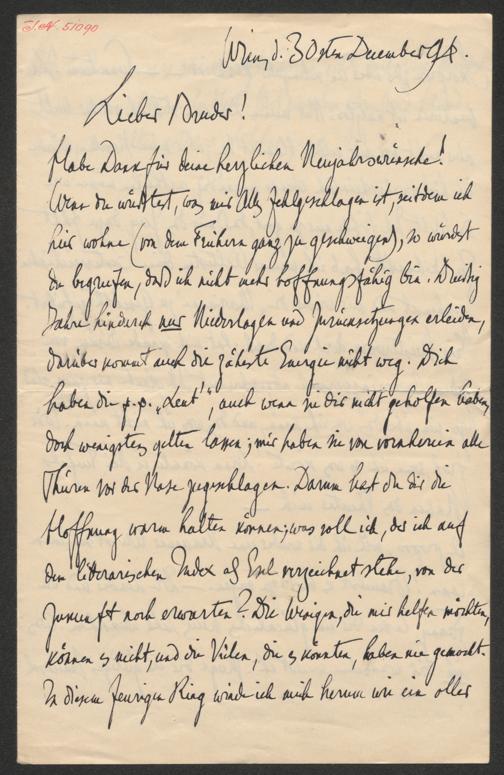 J.N. 51090
Wien, d. 30sten December 94.
Lieber Bruder!
Habe Dank für deine herzlichen Neujahrswünsche!
Wenn du wüßtest, was mir Alles fehlgeschlagen ist, seitdem ich
hier wohne (von dem Frühern ganz zu geschweigen), so würdest
du begreifen, daß ich nicht mehr hoffnungsfähig bin. Dreißig
Jahre hindurch nur Niederlagen und Zurücksetzungen erleiden,
darüber kommt auch die zäheste Energie nicht weg. Dich
haben die p.p. „Leut'", auch wenn sie dir nicht geholfen haben,
doch wenigstens gelten lassen; mir haben sie von vornherein alle
Thüren vor der Nase zugeschlagen. Darum hast du dir die
Hoffnung warm halten können; was soll ich, der ich auf
dem litterarischen Index als Esel verzeichnet stehe, von der
Zukunft noch erwarten? Die Wenigen, die mir helfen möchten,
können es nicht, und die Vielen, die es könnten, haben nie gemocht.
In diesem feurigen Ring winde ich mich herum wie ein oller